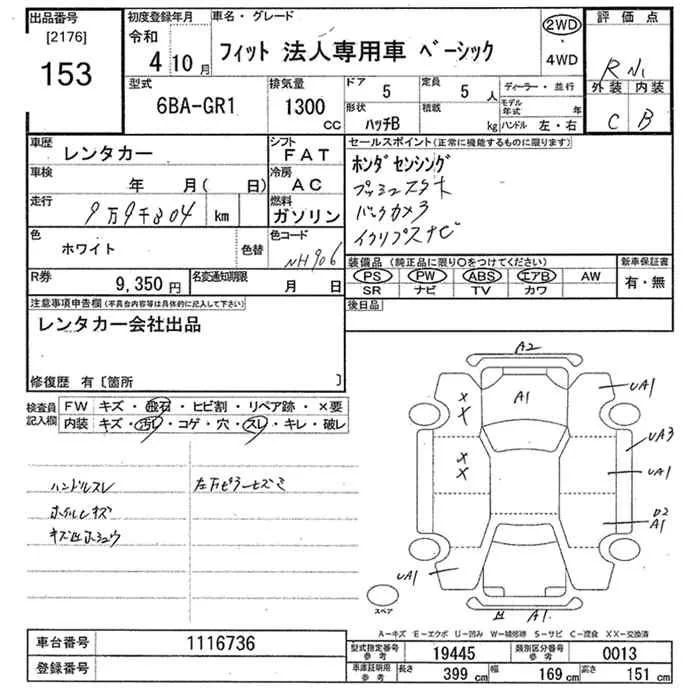 出品番号
[2176]
153
初度登録年月
令和
4 10月
車名・グレード
フィット 法人専用車 ベーシック
2WD
・
4WD
評価点
R
外装 内装
C B
型式
6BA-GR1
排気量
1300
CC
ドア
5
定員
5 人
形状
ハッチB
積載
kg
ディーラー・並行
モデル年式 年
ハンドル 左・右
車歴
レンタカー
シフト
FAT
車検
年 月( 日)
冷房
AC
走行
9万9千804 km
燃料
ガソリン
色
ホワイト
色替
色コード
NH906
R券
9,350円
名変通知期限
月 日
セールスポイント(正常に機能するものに限ります)
ホンダセンシング
プッシュスタート
バックカメラ
イクリプスナビ
装備品(純正品に限り○をつけてください)
PS PW ABS エアB AW
SR ナビ TV カワ
新車保証書
有・無
注意事項申告欄(不具合内容等は具体的に記入して下さい)
レンタカー会社出品
修復歴 有〔箇所 〕
後日品
検査員記入欄
FW キズ・飛石・ヒビ割・リペア跡・×要
内装 キズ・汚れ・コゲ・穴・スレ・キレ・破レ
ハンドルスレ
ホイルキズ
左
A2
A1
UA1
X
X
UA3
X
X
UA1
D2
A1
UA1
A1.
スペア
A-キズ E-エクボ U-凹み W-補修跡 S-サビ C-腐食 XX-交換済
車台番号
1116736
登録番号
型式指定番号
参考
19445
類別区分番号
参考
0013
車庫証明用
参考
長さ
399 cm
幅
169 cm
高さ
151 cm